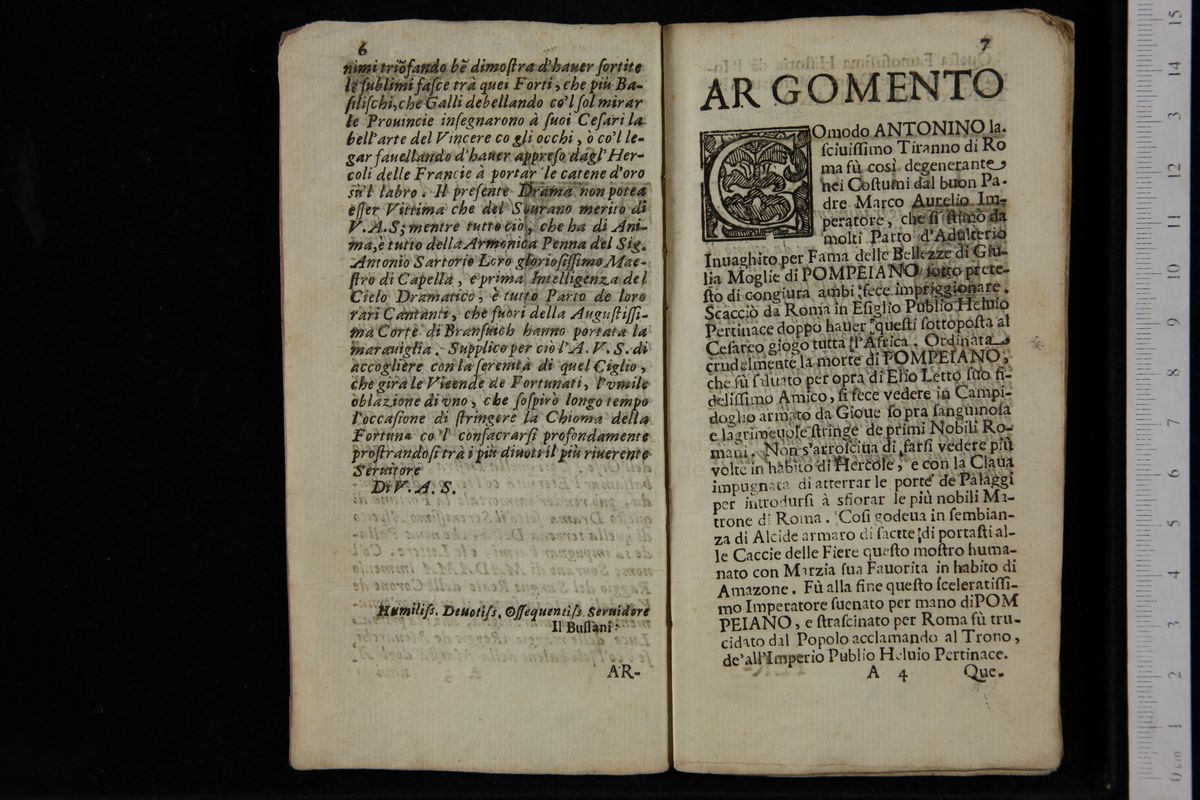 6
nimi triõfando bẽ dimoſtra d'hauer ſortite
le ſublimi faſce trà quei Forti, che più Ba-
ſiliſchi, che Galli debellando co'l ſol mirar
le Prouincie inſegnarono à ſuoi Ceſari la
bell'arte del Vincere co gli occhi, ò co'l le-
gar fauellando d'hauer appreſo dagl'Her-
coli delle Francie à portar le catene d'oro
sù'l labro. Il preſente Drama non potea
eſſer Vittima che del Sourano merito di
V. A. S; mentre tutto ciò, che ha di Ani-
ma, è tutto della Armonica Penna del Sig.
Antonio Sartorio Loro glorioſiſſimo Mae-
ſtro di Capella, e prima Intelligenza del
Cielo Dramatico, è tutto Parto de loro
rari Cantanti, che fuori della Auguſtiſſi-
ma Corte di Branſuich hanno portata la
marauiglia. Supplico per ciò l'A. V. S. di
accogliere con la ſerenità di quel Ciglio,
che gira le Vicende de Fortunati, l'vmile
oblazione di vno, che ſoſpirò longo tempo
l'occaſione di ſtringere la Chioma della
Fortuna co'l conſacrarſi profondamente
proſtrandoſi trà i più diuoti il più riuerente
Seruitore
Di V. A. S.
Humiliſs. Deuotiſs. Oſſequentiſs. Seruidore
Il Buſſani.
AR-
7
ARGOMENTO
COmodo ANTONINO la-
ſciuiſſimo Tiranno di Ro
ma fù così degenerante
nei Coſtumi dal buon Pa-
dre Marco Aurelio Im-
peratore, che ſi ſtimò da
molti Parto d'Adulterio
Inuaghito per Fama delle Bellezze di Giu-
lia Moglie di POMPEIANO ſotto prete-
ſto di congiura ambi fece impriggionare.
Scacciò da Roma in Eſiglio Publio Heluio
Pertinace doppo hauer queſti ſottopoſta al
Ceſareo giogo tutta l'Africa. Ordinata
crudelmente la morte di POMPEIANO,
che fù ſaluato per opra di Elio Letto ſuo fi-
deliſſimo Amico, ſi fece vedere in Campi-
doglio armato da Gioue ſo pra ſanguinoſa
e lagrimeuole ſtringe de primi Nobili Ro-
mani. Non s'arroſciua di farſi vedere più
volte in habito di Hercole, e con la Claua
impugnata di atterrar le porte de Palaggi
per introdurſi à sfiorar le più nobili Ma-
trone di Roma. Coſi godeua in ſembian-
za di Alcide armaro di ſaette di portaſti al-
le Caccie delle Fiere queſto moſtro huma-
nato con Marzia ſua Fauorita in habito di
Amazone. Fù alla fine queſto ſceleratiſſi-
mo Imperatore ſuenato per mano diPOM
PEIANO, e ſtraſcinato per Roma fù tru-
cidato dal Popolo acclamando al Trono,
de'all'Imperio Publio Heluio Pertinace.
A 4 Que-